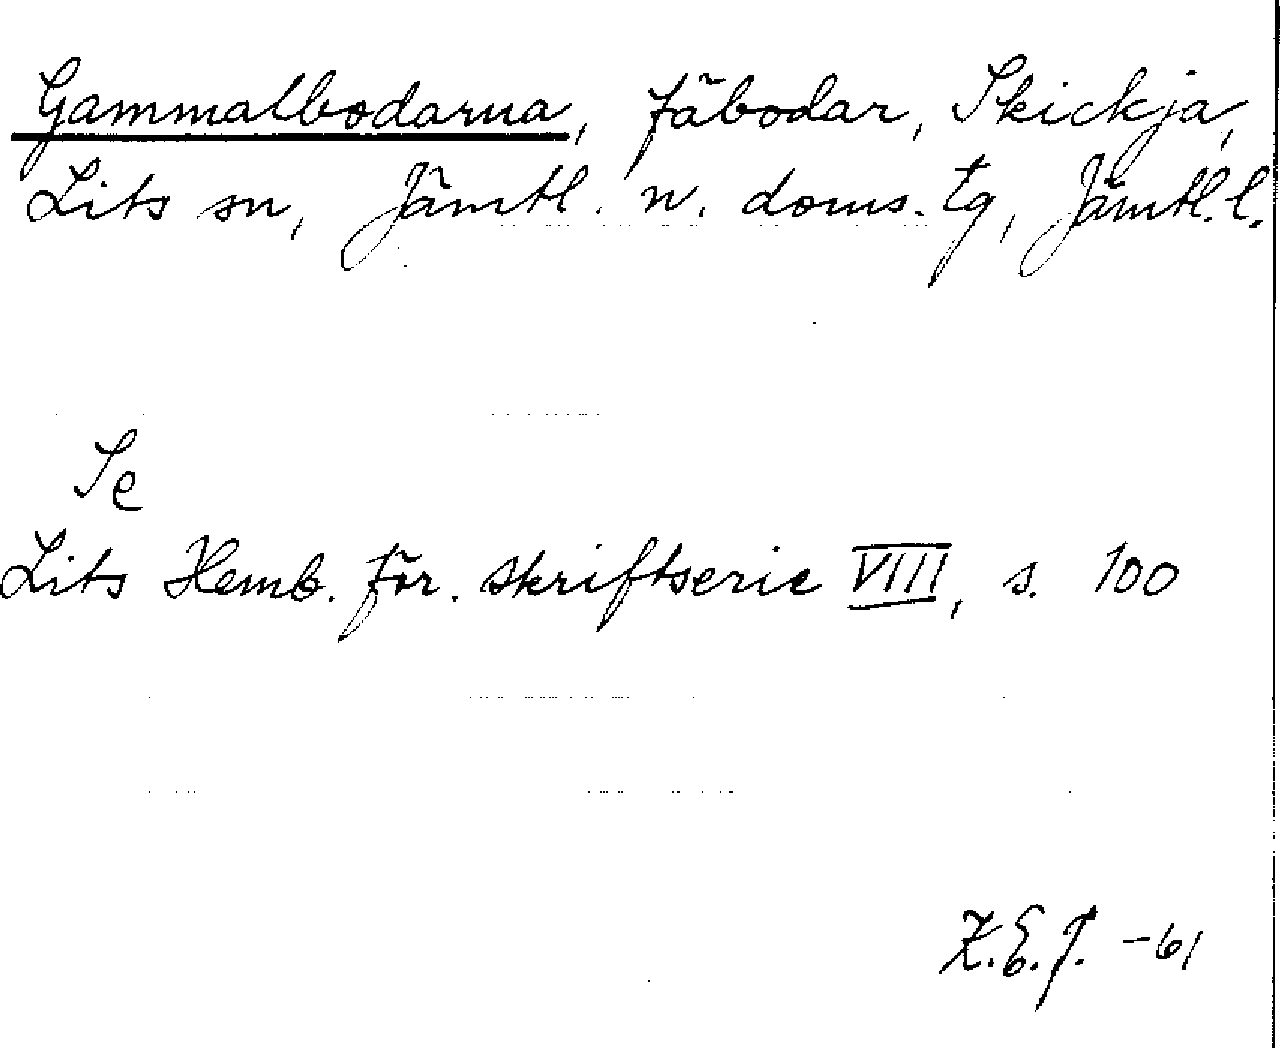 Gammalbodarna, fäbodar, Skickja,
Lits sn, Jämtl. n. doms. tg, Jämtl. l.
Se
Lits Hemb. för. skriftserie VIII, s. 100
K.E.J. -61